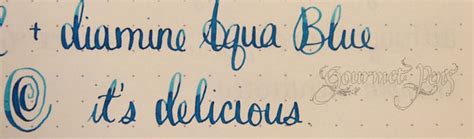 + diamine Aqua Blue
it's delicious
Gourmet Pens